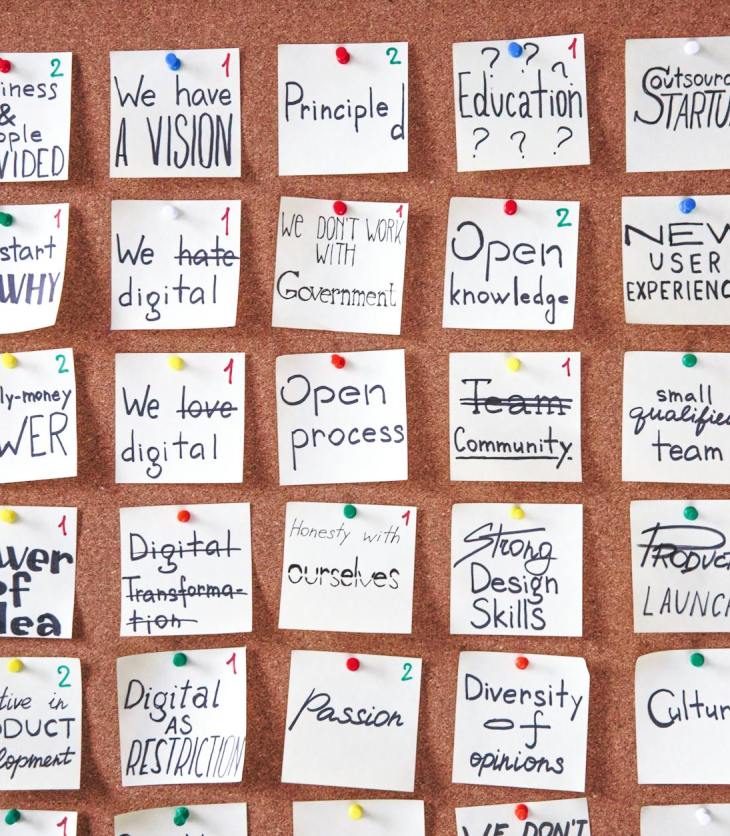 2
iness
&
ople
VIDED
1
We have
A VISION
2
Principled
1
? ? ?
Education
? ? ?
Outsourc
STARTU
1
start
WHY
1
We hate
digital
1
WE DON'T WORK
WITH
Government
2
Open
knowledge
NEW
USER
EXPERIENC
2
ly-money
WER
1
We love
digital
Open
process
1
Team
Community
small
qualifie
team
1
wer
of
dea
Digital
Transforma-
tion
1
Honesty with
ourselves
Strong
Design
Skills
PRODUCT
LAUNCH
2
tive in
ODUCT
lopment
1
Digital
AS
RESTRICTION
2
Passion
Diversity
of
opinions
Cultur
1
WE DON'T